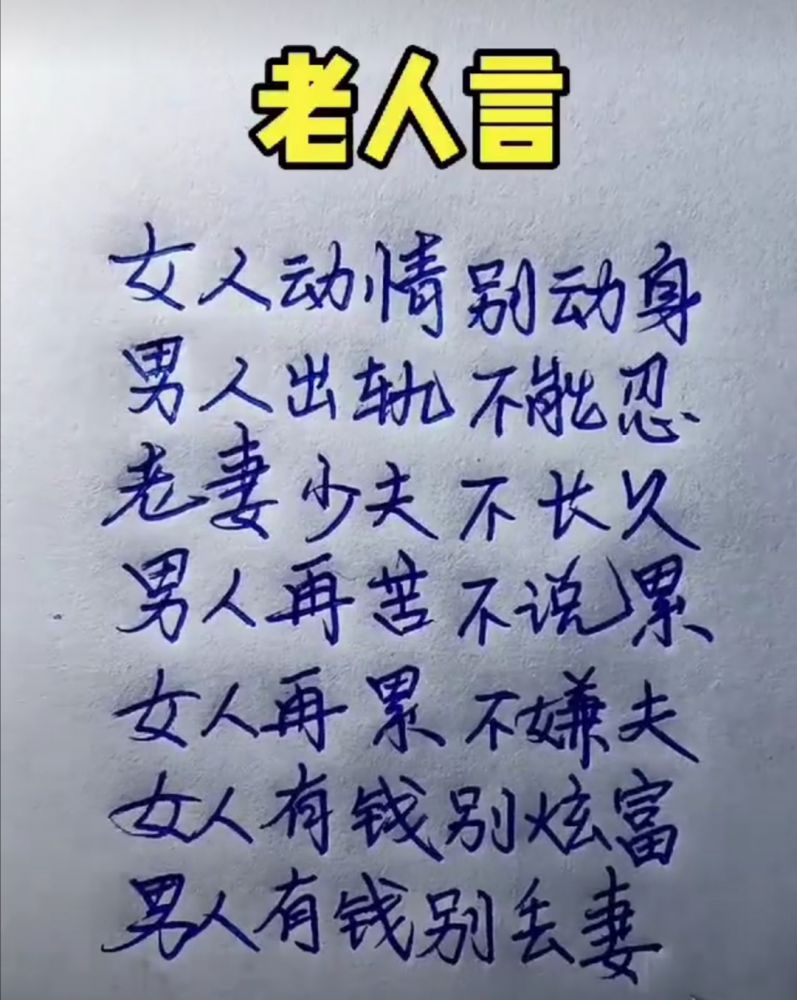 老人言
女人动情别动身
男人出轨不能忍
老妻少夫不长久
男人再苦不说累
女人再累不嫌夫
女人有钱别炫富
男人有钱别丢妻